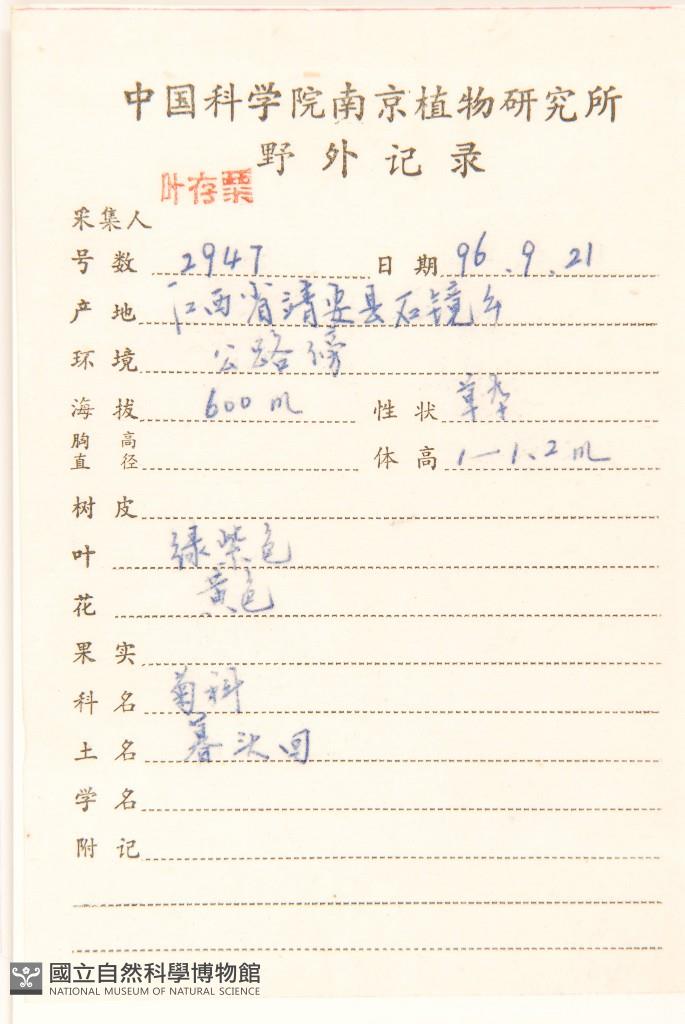 中国科学院南京植物研究所
野外记录
叶存栗
采集人
号数 2947 日期 96.9.21
产地 江西省靖安县石镜乡
环境 公路傍
海拔 600m 性状 草本
胸高直径 体高 1—1.2m
树皮
叶 绿紫色
花 黄色
果实
科名 菊科
土名 暮头回
学名
附记
國立自然科學博物館
NATIONAL MUSEUM OF NATURAL SCIENCE